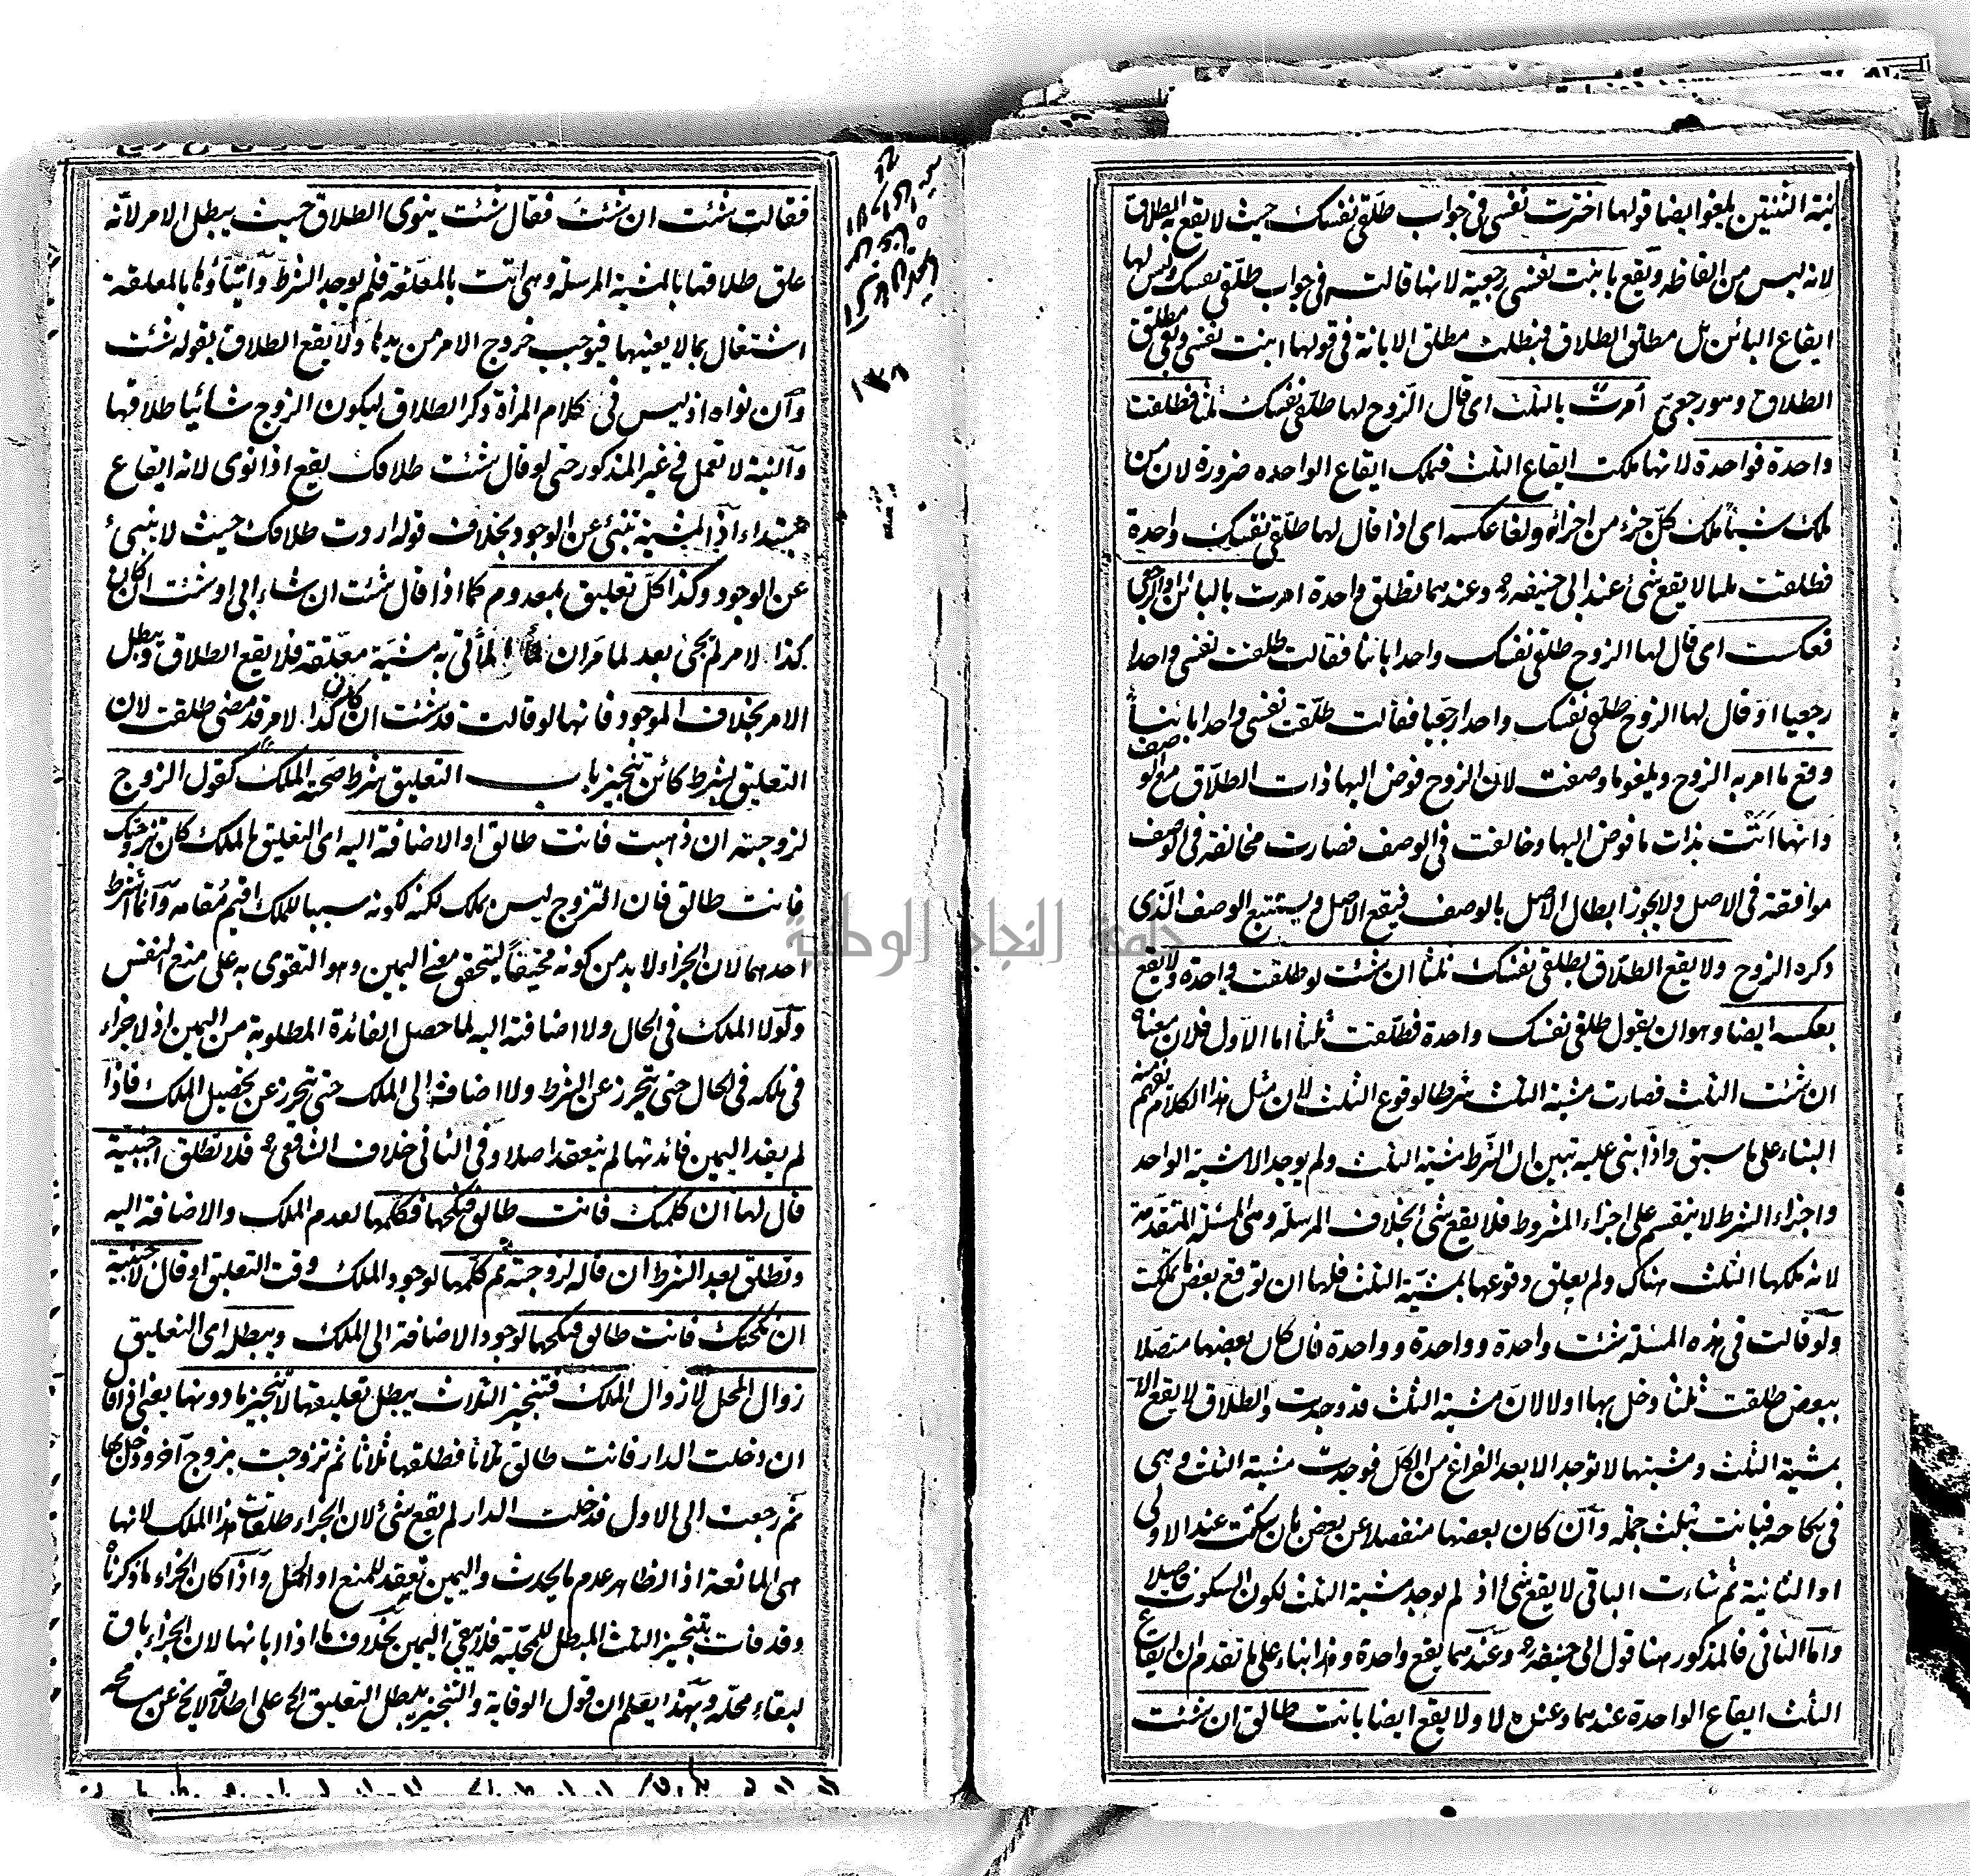 نية الثنتين يلغو ايضا قولها اخترت نفسى فى جواب طلقى نفسك حيث لا يقع به الطلاق
لانه ليس من الفاظه ويقع بابنت نفسى رجعية لانها قالت فى جواب طلّقى نفسك وليس لها
ايقاع البائن بل مطلق الطلاق فبطلت مطلق الابانة فى قولها ابنت نفسى وبقى مطلق
الطلاق وهو رجعى أمرت بالثلث اى قال الزوج لها طلقى نفسك ثلثا فطلقت
واحدة فواحدة لانها ملكت ايقاع الثلث فيملك ايقاع الواحده ضرورة لان من
ملك شيئا ملك كلّ جزء من اجزائه ولغا عكسه اى اذا قال لها طلّقى نفسك واحدة
فطلقت ثلثا لا يقع شئ عند ابى حنيفه رح وعندهما تطلق واحدة امرت بالبائن او الرجعى
فعكست اى قال لها الزوج طلقى نفسك واحدا بائنا فقالت طلقت نفسى واحدا
رجعيا او قال لها الزوج طلقى نفسك واحدا رجعيا فقالت طلّقت نفسى واحدا بائنا
وقع ما امر به الزوج ويلغو ما وصفت لان الزوج فوض اليها ذات الطلاق مع الوصف
وانها اتت بذات ما فوض اليها وخالفت فى الوصف فصارت مخالفة فى الوصف
موافقة فى الاصل ولا يجوز ابطال الاصل بالوصف فيقع الاصل ويستتبع الوصف الذى
ذكره الزوج ولا يقع الطلاق بطلقى نفسك ثلثا ان شئت لو طلقت واحدة ولا يقع
بعكسه ايضا وهو ان يقول طلقى نفسك واحدة فطلّقت ثلثا اما الاول فلان معناه
ان شئت الثلث فصارت مشية الثلث شرطا لوقوع الثلث لان مثل هذا الكلام يفهم منه
البناء على ما سبق واذا بنى عليه تبين ان الشرط مشية الثلث ولم يوجد الا مشية الواحد
واجزاء الشرط لا ينقسم على اجزاء المشروط فلا يقع شئ بخلاف المرسلة وهى المسئلة المتقدمة
لانه ملكها الثلث هناك ولم يعلق وقوعها بمشية الثلث فلها ان توقع بعض ما ملكت
ولو قالت فى هذه المسئلة شئت واحدة وواحدة وواحدة فان كان بعضها متصلا
ببعض طلقت ثلثا دخل بها اولا لان مشية الثلث قد وجدت والطلاق لا يقع الا
بمشية الثلث ومشيتها لا توجد الا بعد الفراغ من الكل فوجدت مشية الثلث وهى
فى نكاحه فبانت بثلث جملة وان كان بعضها منفصلا عن بعض بان سكتت عند الاولى
او الثانية ثم شاءت الباقى لا يقع شئ اذ لم يوجد مشية الثلث لكون السكوت فاصلا
واما الثانى فالمذكور هنا قول ابى حنيفة رح وعندهما يقع واحدة وهذا بناء على ما تقدم ان ايقاع
الثلث ايقاع الواحدة عندهما وعنده لا ولا يقع ايضا بانت طالق ان شئت
فقالت شئت ان شئت فقال شئت ينوى الطلاق حيث يبطل الامر لانّه
علق طلاقها بالمشية المرسلة وهى اتت بالمعلقة فلم يوجد الشرط واتياؤها بالمعلقة
اشتغال بما لا يعنيها فيوجب خروج الامر من يدها ولا يقع الطلاق بقوله شئت
وان نواه اذ ليس فى كلام المرأة ذكر الطلاق ليكون الزوج شائيا طلاقها
والنية لا تعمل فى غير المذكور حتى لو قال شئت طلاقك يقع اذا نوى لانه ايقاع
مبتداء اذ المشية تنبئ عن الوجود بخلاف قوله اردت طلاقك حيث لا ينبئ
عن الوجود وكذا كلّ تعليق بمعدوم كما اذا قال شئت ان شاء ابى او شئت ان كان
كذا لامر لم يجئ بعد لما مرّ ان المأتى به مشية معلّقة فلا يقع الطلاق ويبطل
الامر بخلاف الموجود فانها لو قالت قد شئت ان كان كذا لامر قد مضى طلقت لان
التعليق بشرط كائن تنجيز باب التعليق شرط صحته الملك كقول الزوج
لزوجته ان ذهبت فانت طالق او الاضافة اليه اى التعليق بالملك كان تزوجتك
فانت طالق فان التّزوج ليس بملك لكنه لكونه سببا للملك اقيم مقامه وانما اشترط
احدهما لان الجزاء لا بد من كونه مخيفاً ليتحقق معنى اليمين وهو التقوى به على منع النفس
ولولا الملك فى الحال ولا اضافة اليه لما حصل الفائدة المطلوبة من اليمين اذ لا جزاء
فى ملكه فى الحال حتى يتحرز عن الشرط ولا اضافة الى الملك حتى يتحرز عن تحصيل الملك فاذا
لم يفد اليمين فائدتها لم ينعقد اصلا وفى الثانى خلاف الشافعى رح فلا تطلق اجنبية
قال لها ان كلمتك فانت طالق فنكحها فكلمها لعدم الملك والاضافة اليه
وتطلق بعد الشرط ان قاله لزوجته ثم كلّمها لوجود الملك وقت التعليق او قال لاجنبية
ان نكحتك فانت طالق فنكحها لوجود الاضافة الى الملك ويبطله اى التعليق
زوال المحل لا زوال الملك فتنجيز الثلاث يبطل تعليقها لا تنجيز ما دونها يعنى اذا قال
ان دخلت الدار فانت طالق ثلاثا فطلقها ثلاثا ثم تزوجت بزوج آخر ودخل بها
ثم رجعت الى الاول فدخلت الدار لم يقع شئ لان الجزاء طلقات هذا الملك لانها
هى المانعة اذ الظاهر عدم ما يحدث واليمين تعقد للمنع او الحمل واذا كان الجزاء ما ذكرنا
وقد فات بتنجيز الثلث المبطل للمحلية فلا يبقى اليمين بخلاف ما اذا ابانها لان الجزاء باق
لبقاء محله وبهذا يعلم ان قول الوقاية والتنجيز يبطل التعليق الخ على اطلاقه لا يخ عن
١٣٦
جامعة النجاح الوطنية